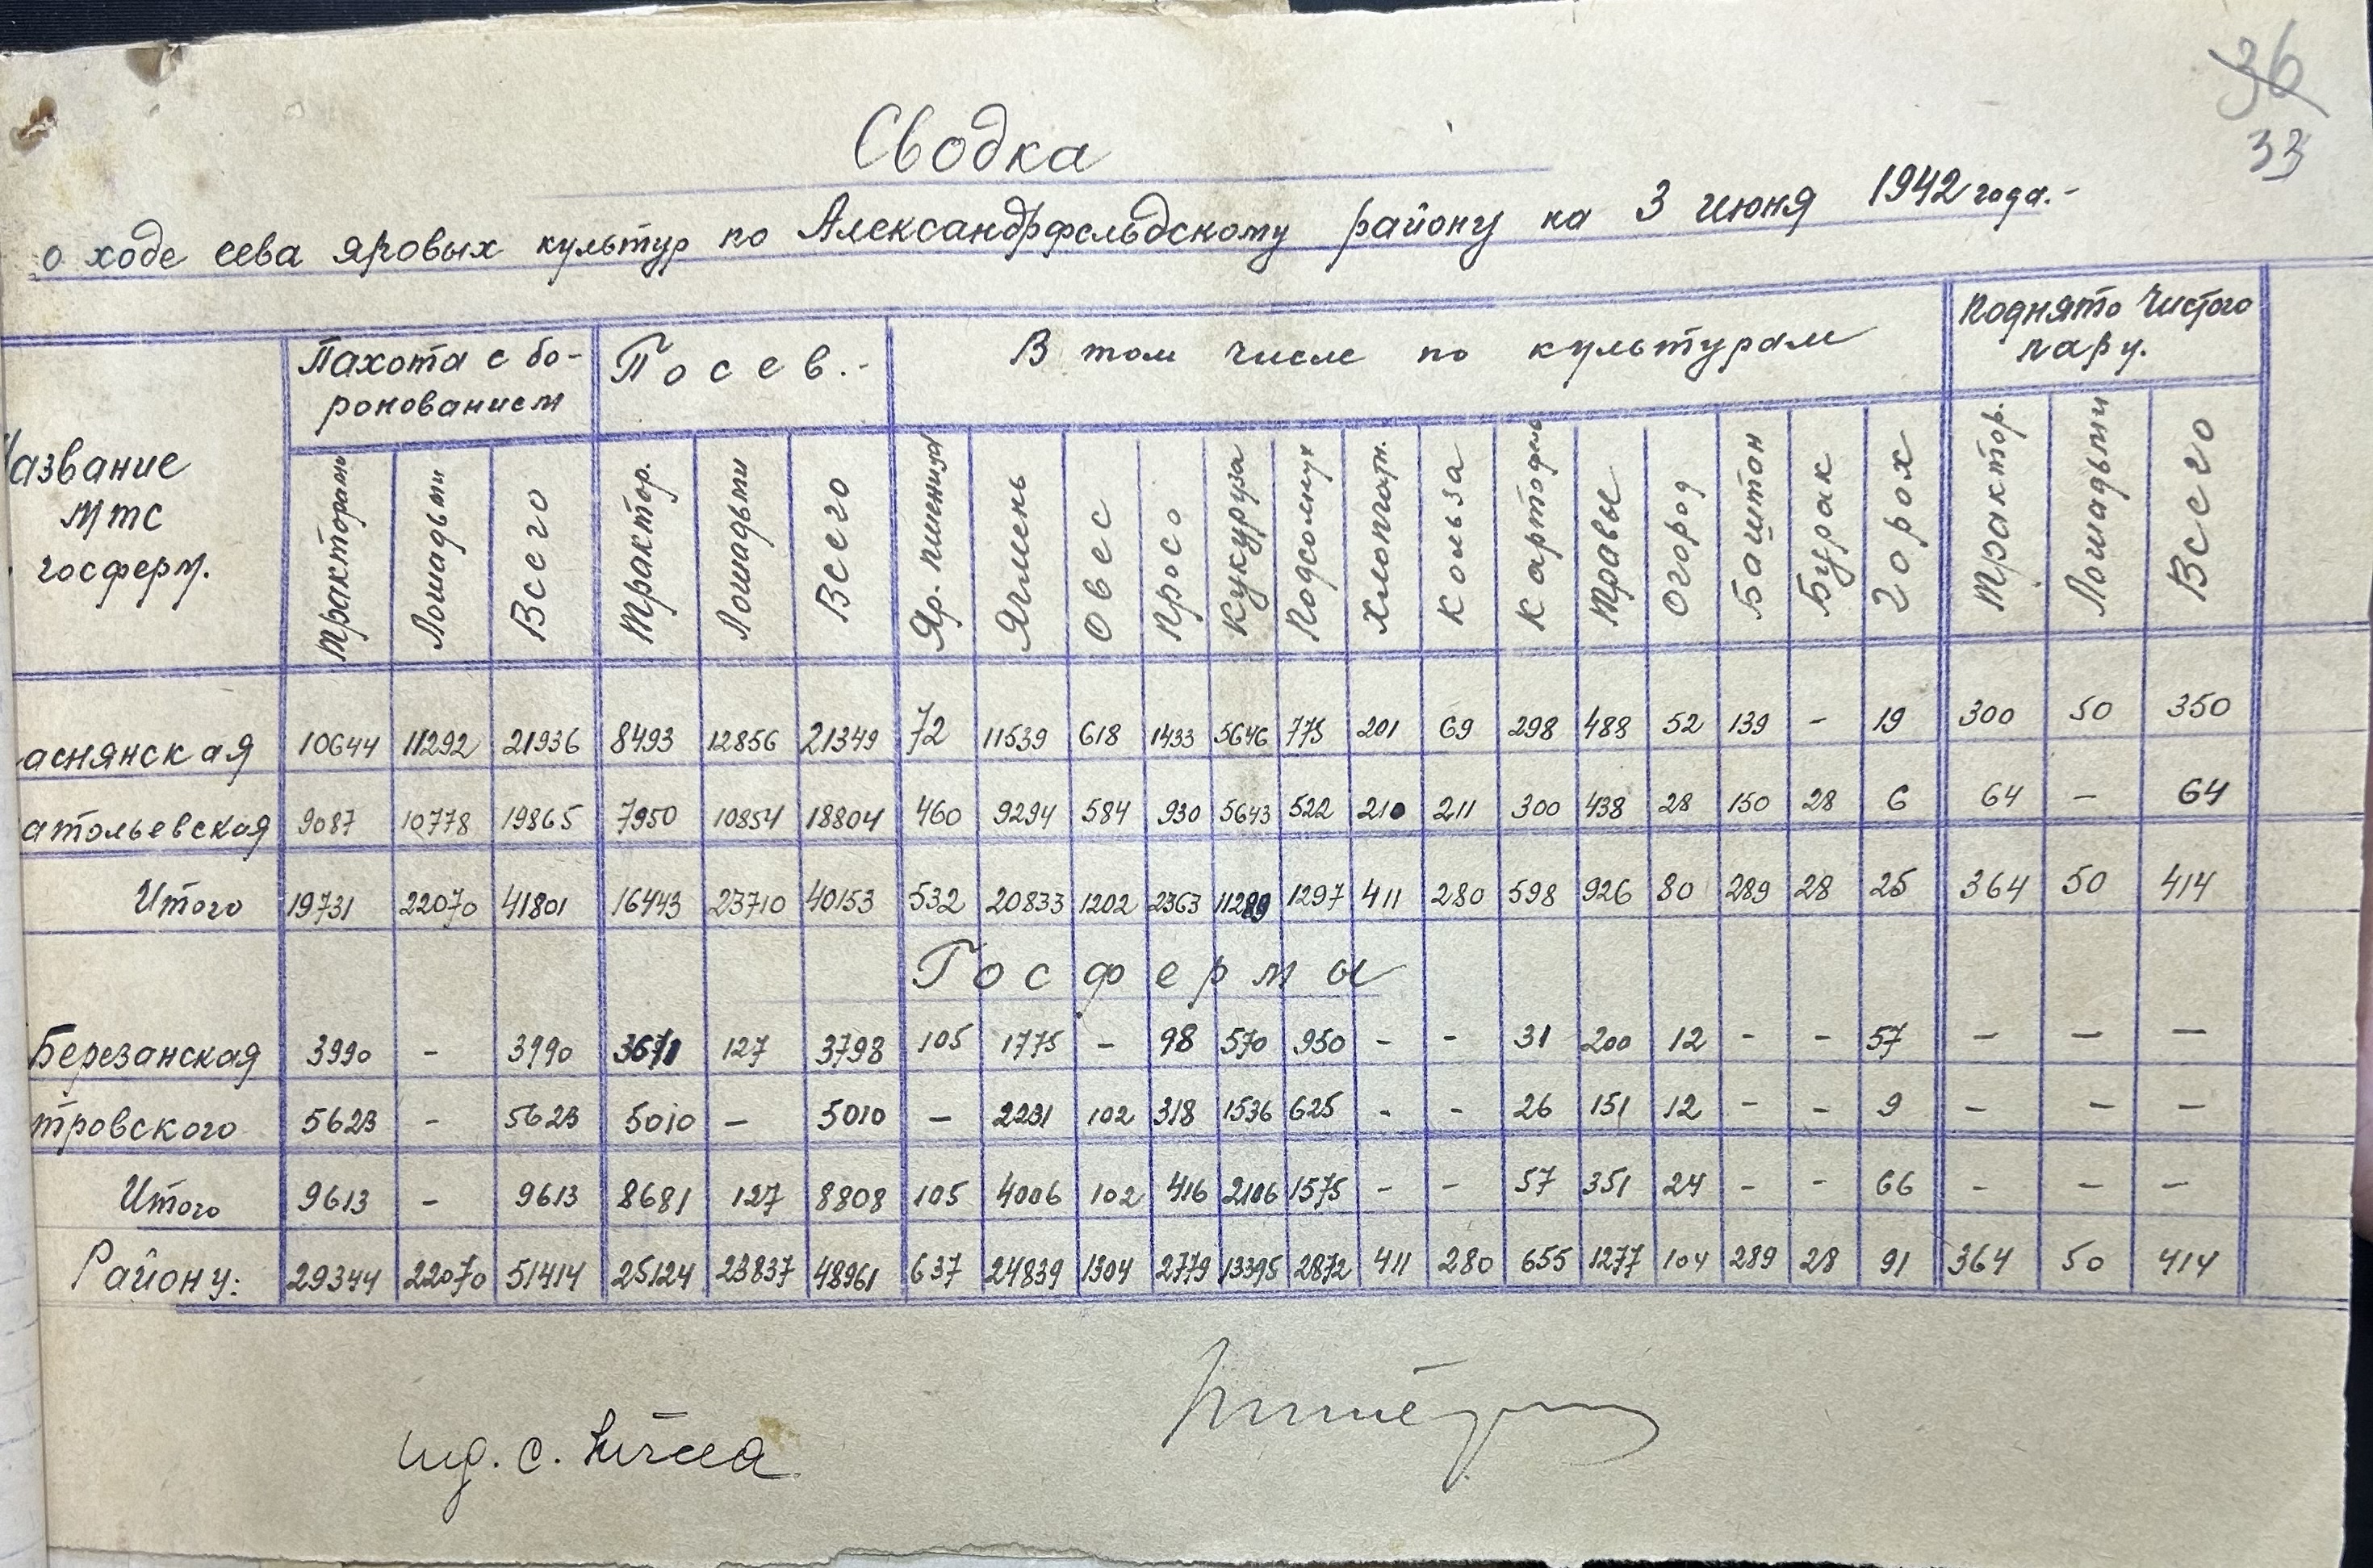 36
33
Сводка
о ходе сева яровых культур по Александрфельдскому району на 3 июня 1942 года.-
Название МТС госферм. | Пахота с боронованием | Посев.- | В том числе по культурам | Поднято чистого пару.
Тракторами | Лошадьми | Всего | Трактор. | Лошадьми | Всего | Яр. пшеница | Ячмень | Овес | Просо | Кукуруза | Подсолнух | Хлопчатн. | Кольза | Картофель | Травы | Огород | Баштан | Бурак | Горох | Трактор. | Лошадьми | Всего
аснянская | 10644 | 11292 | 21936 | 8493 | 12856 | 21349 | 72 | 11539 | 618 | 1433 | 5646 | 775 | 201 | 69 | 298 | 488 | 52 | 139 | - | 19 | 300 | 50 | 350
атольевская | 9087 | 10778 | 19865 | 7950 | 10854 | 18804 | 460 | 9294 | 584 | 930 | 5643 | 522 | 210 | 211 | 300 | 438 | 28 | 150 | 28 | 6 | 64 | - | 64
Итого | 19731 | 22070 | 41801 | 16443 | 23710 | 40153 | 532 | 20833 | 1202 | 2363 | 11289 | 1297 | 411 | 280 | 598 | 926 | 80 | 289 | 28 | 25 | 364 | 50 | 414
Госфермы
Березанская | 3990 | - | 3990 | 3671 | 127 | 3798 | 105 | 1775 | - | 98 | 570 | 950 | - | - | 31 | 200 | 12 | - | - | 57 | - | - | -
тровского | 5623 | - | 5623 | 5010 | - | 5010 | - | 2231 | 102 | 318 | 1536 | 625 | - | - | 26 | 151 | 12 | - | - | 9 | - | - | -
Итого | 9613 | - | 9613 | 8681 | 127 | 8808 | 105 | 4006 | 102 | 416 | 2106 | 1575 | - | - | 57 | 351 | 24 | - | - | 66 | - | - | -
Району: | 29344 | 22070 | 51414 | 25124 | 23837 | 48961 | 637 | 24839 | 1304 | 2779 | 13395 | 2872 | 411 | 280 | 655 | 1277 | 104 | 289 | 28 | 91 | 364 | 50 | 414